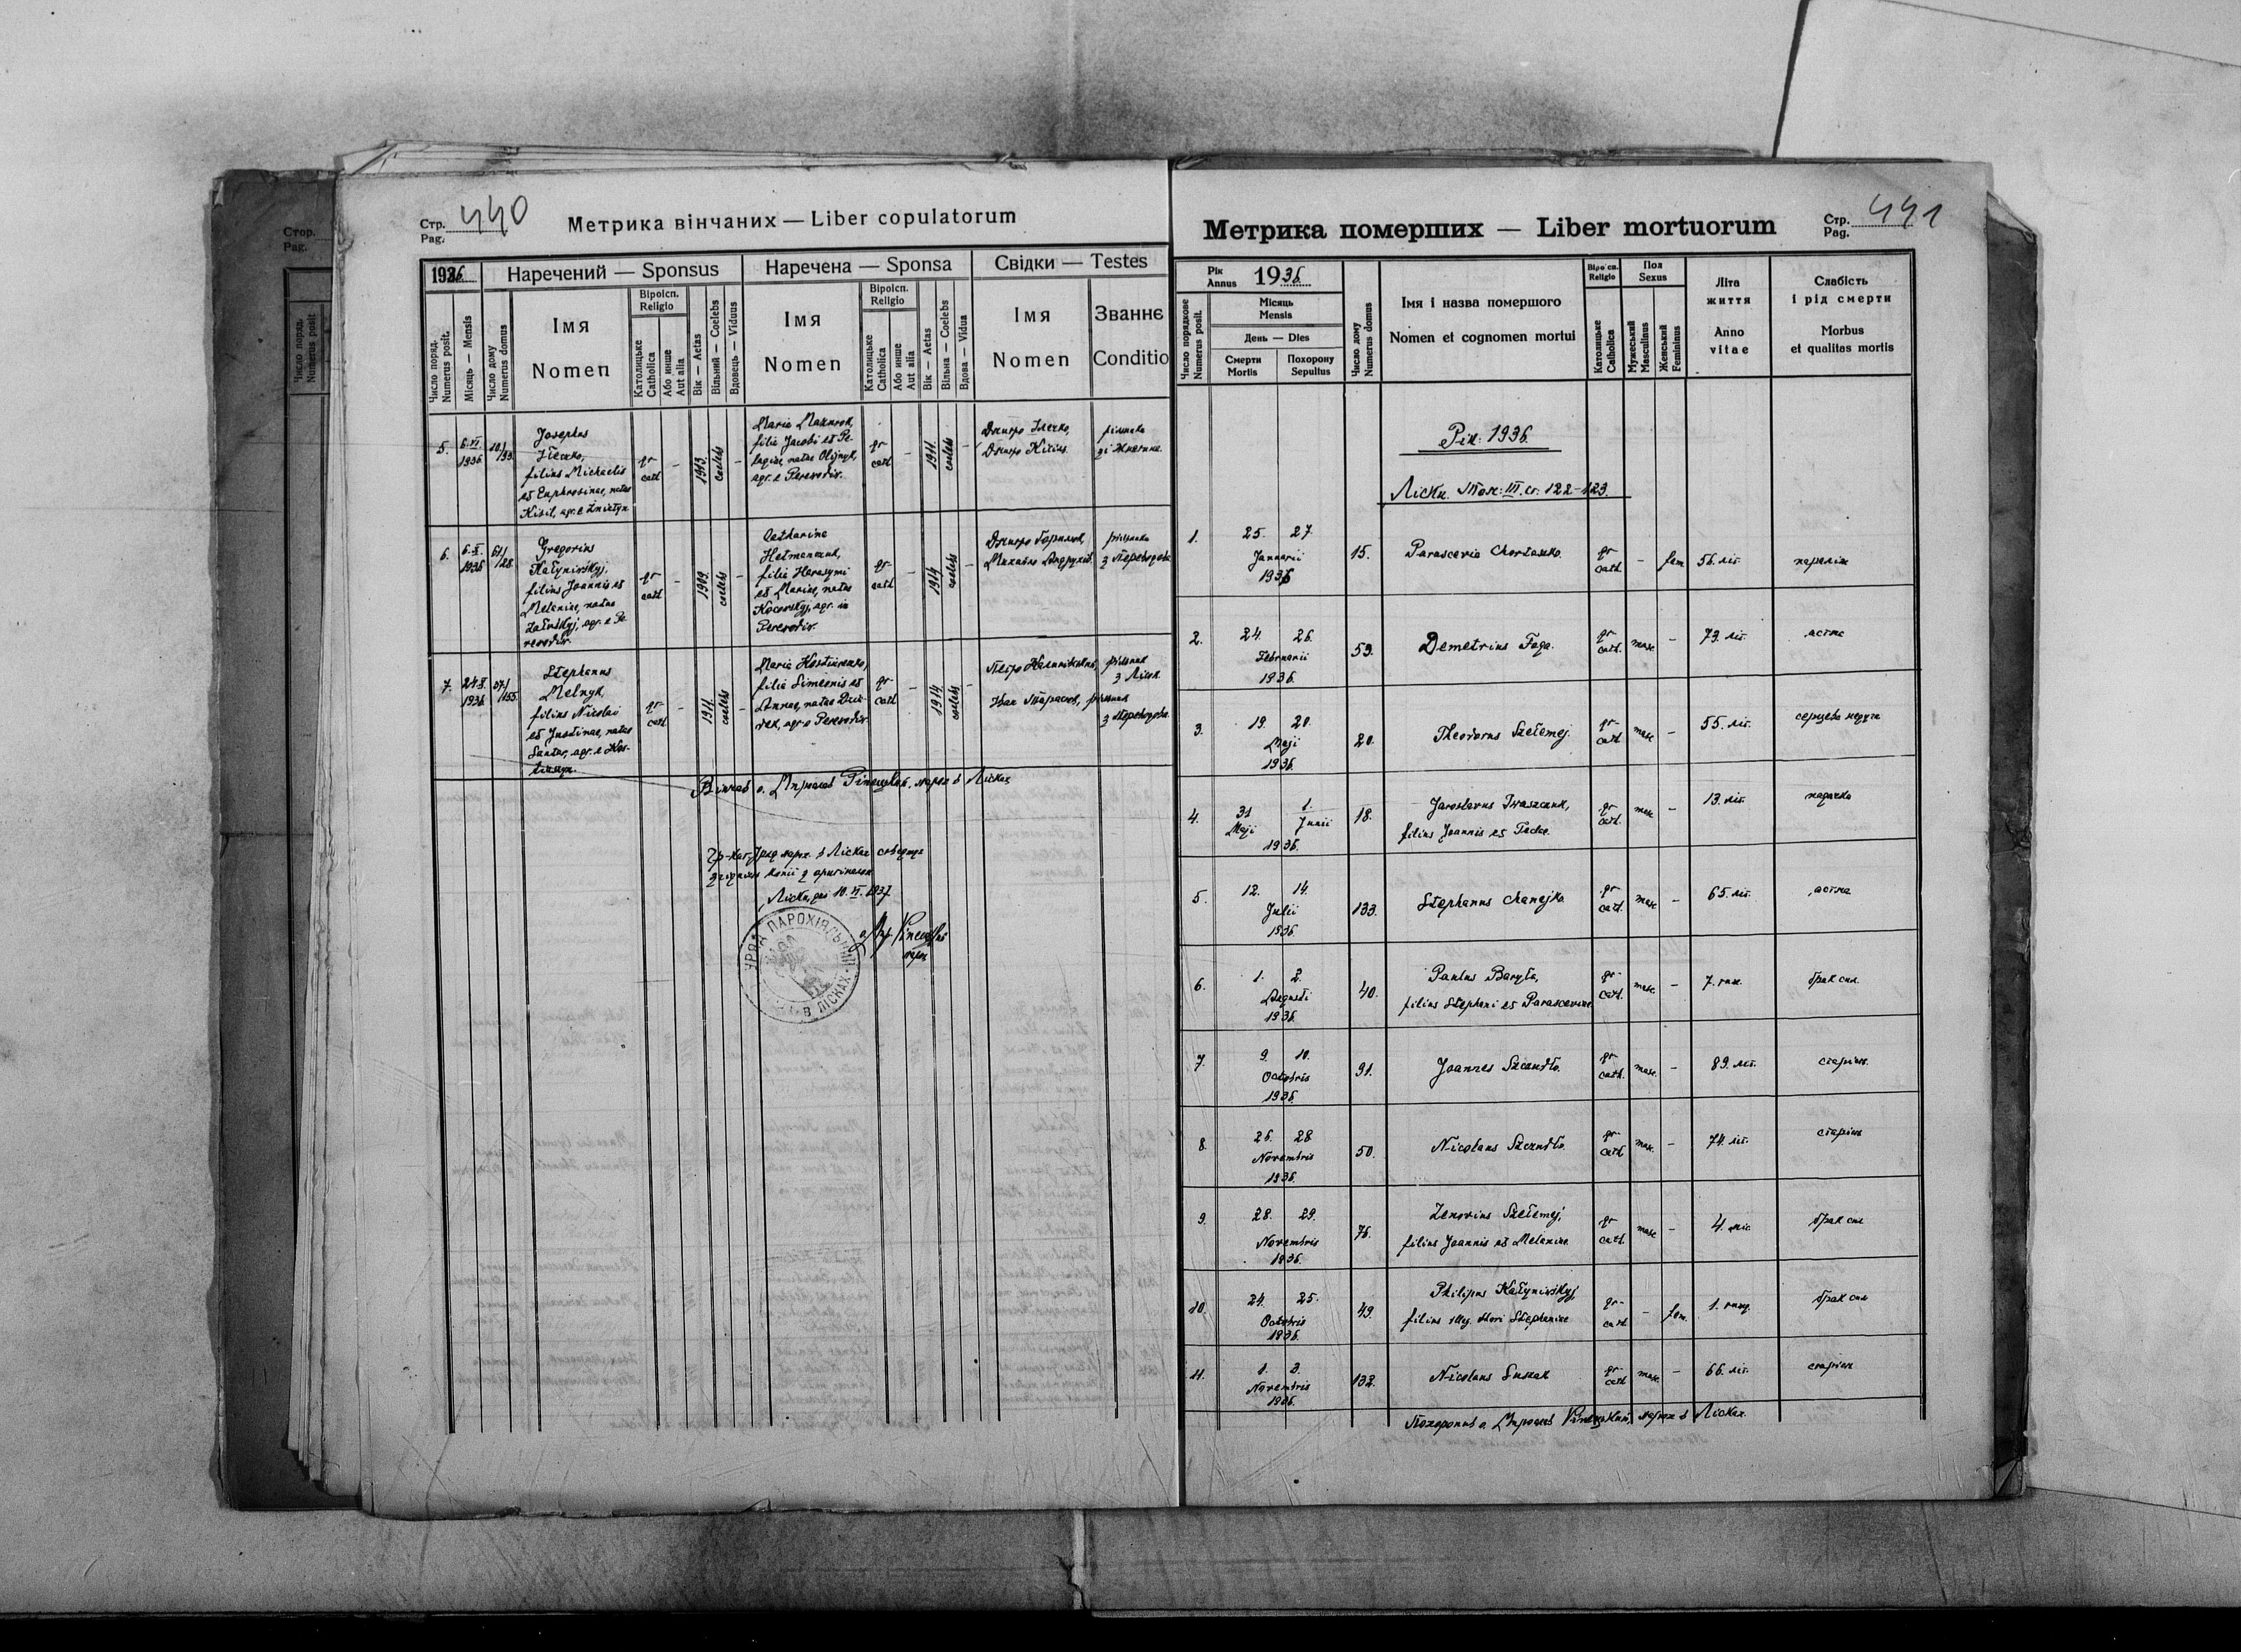 Стор.
Pag.
Число поряд.
Numerus posit
Стр. 440
Pag.
Метрика вінчаних — Liber copulatorum
1936
Наречений — Sponsus
Наречена — Sponsa
Свідки — Testes
Число поряд.
Numerus posit.
Місяць — Mensis
Число дому
Numerus domus
Імя
Nomen
Віроісп.
Religio
Католицьке
Catholica
Або инше
Aut alia
Вік — Aetas
Вільний — Coelebs
Вдовець — Viduus
Імя
Nomen
Віроісп.
Religio
Католицьке
Catholica
Або инше
Aut alia
Вік — Aetas
Вільна — Coelebs
Вдова — Vidua
Імя
Nomen
Званнє
Conditio
5.
6.VI
1936
Josephus
filius Michaelis
et Euphrosinae, natae
Kisil, agr. e
gr
cath
-
1913
coelebs
-
Maria
filia Jacobi et Pe-
lagiae, natae Olijnyk,
agr. e Perevodiv.
gr
cath
-
1911
coelebs
-
Дмитро
Дмитро
6.
1936
61/28
Gregorius
Kałyniwskyj,
filius Joannis et
Melaniae, natae
agr. e Pe-
revodiv.
gr
cath
-
1909
coelebs
-
Catharina
Hetmanczuk,
filia Harasymi
et Mariae, natae
agr. in
Perevodiv.
gr
cath
-
1914
coelebs
-
Дмитро
з Переводова
7.
24.X
1936
Stephanus
Melnyk,
filius Nicolai
et Justinae, natae
agr. e Kos-
gr-
cath
-
1911
coelebs
-
Maria
filia Simeonis et
Annae, natae
agr. e Perevodiv
gr-
cath
-
1914
coelebs
-
Петро
рільник
з Лісок
Іван Тарасюк, рільник
з Переводова
Вінчав о. Мирослав Ріпецький, парох в Лісках
Гр.-кат. Уряд парох. в Лісках
копії з оригіналом
Ліски, дня 10.VI.1937
о. Мир. Ріпецький
парох
УРЯД ПАРОХІЯЛЬНИЙ
В ЛІСКАХ
Метрика померших — Liber mortuorum
Стр. 441
Pag.
Число порядкове
Numerus posit.
Рік
Annus
1936
Місяць
Mensis
День — Dies
Смерти
Mortis
Похорону
Sepultus
Число дому
Numerus domus
Імя і назва помершого
Nomen et cognomen mortui
Віроісп.
Religio
Католицьке
Catholica
Пол
Sexus
Мужеський
Masculinus
Женський
Femininus
Літа
життя
Anno
vitae
Слабість
і рід смерти
Morbus
et qualitas mortis
Рік: 1936.
Ліски. Том: III. ст: 122-123.
1.
25. 27.
Januarii
1936
15.
Parascevia
gr
cath
-
fem
56. літ.
параліж
2.
24. 26.
Februarii
1936.
59.
Demetrius Faga.
gr-
cath.
masc
-
73. літ.
астма
3.
19. 20.
Maji
1936.
20.
Theodorus Szełemej.
gr-
cath
masc
-
55. літ.
серцева недуга
4.
31 1.
Maji Junii
1936.
18.
Jaroslavus Iwaszczuk,
filius Joannis et
gr-
cath.
masc
-
13. літ.
5.
12. 14.
Julii
1936.
133.
Stephanus Chanejko
gr
cath.
masc
-
65. літ.
астма
6.
1. 2.
Augusti
1936.
40.
Paulus Baryła,
filius Stephani et Parasceviae
gr-
cath.
masc.
-
7. год.
брак сил.
7.
9. 10.
Octobris
1936.
91.
Joannes Szczudło.
gr
cath.
masc.
-
89. літ.
старість.
8.
26. 28
Novembris
1936.
50.
Nicolaus Szczudło.
gr-
cath
masc.
-
74. літ.
старість
9.
28. 29.
Novembris
1936.
76.
Zenovius Szełemej,
filius Joannis et Melaniae
gr-
cath.
masc
-
4. міс
брак сил
10.
24. 25.
Octobris
1936.
49.
Philipus Kałyniwskyj
filius illeg. thori Stephaniae
gr-
cath
-
fem.
1. год.
брак сил
11.
1. 3.
Novembris
1936.
132.
Nicolaus
gr-
cath
masc.
-
66. літ.
старість
Похоронив о. Мирослав Ріпецький, парох в Лісках.